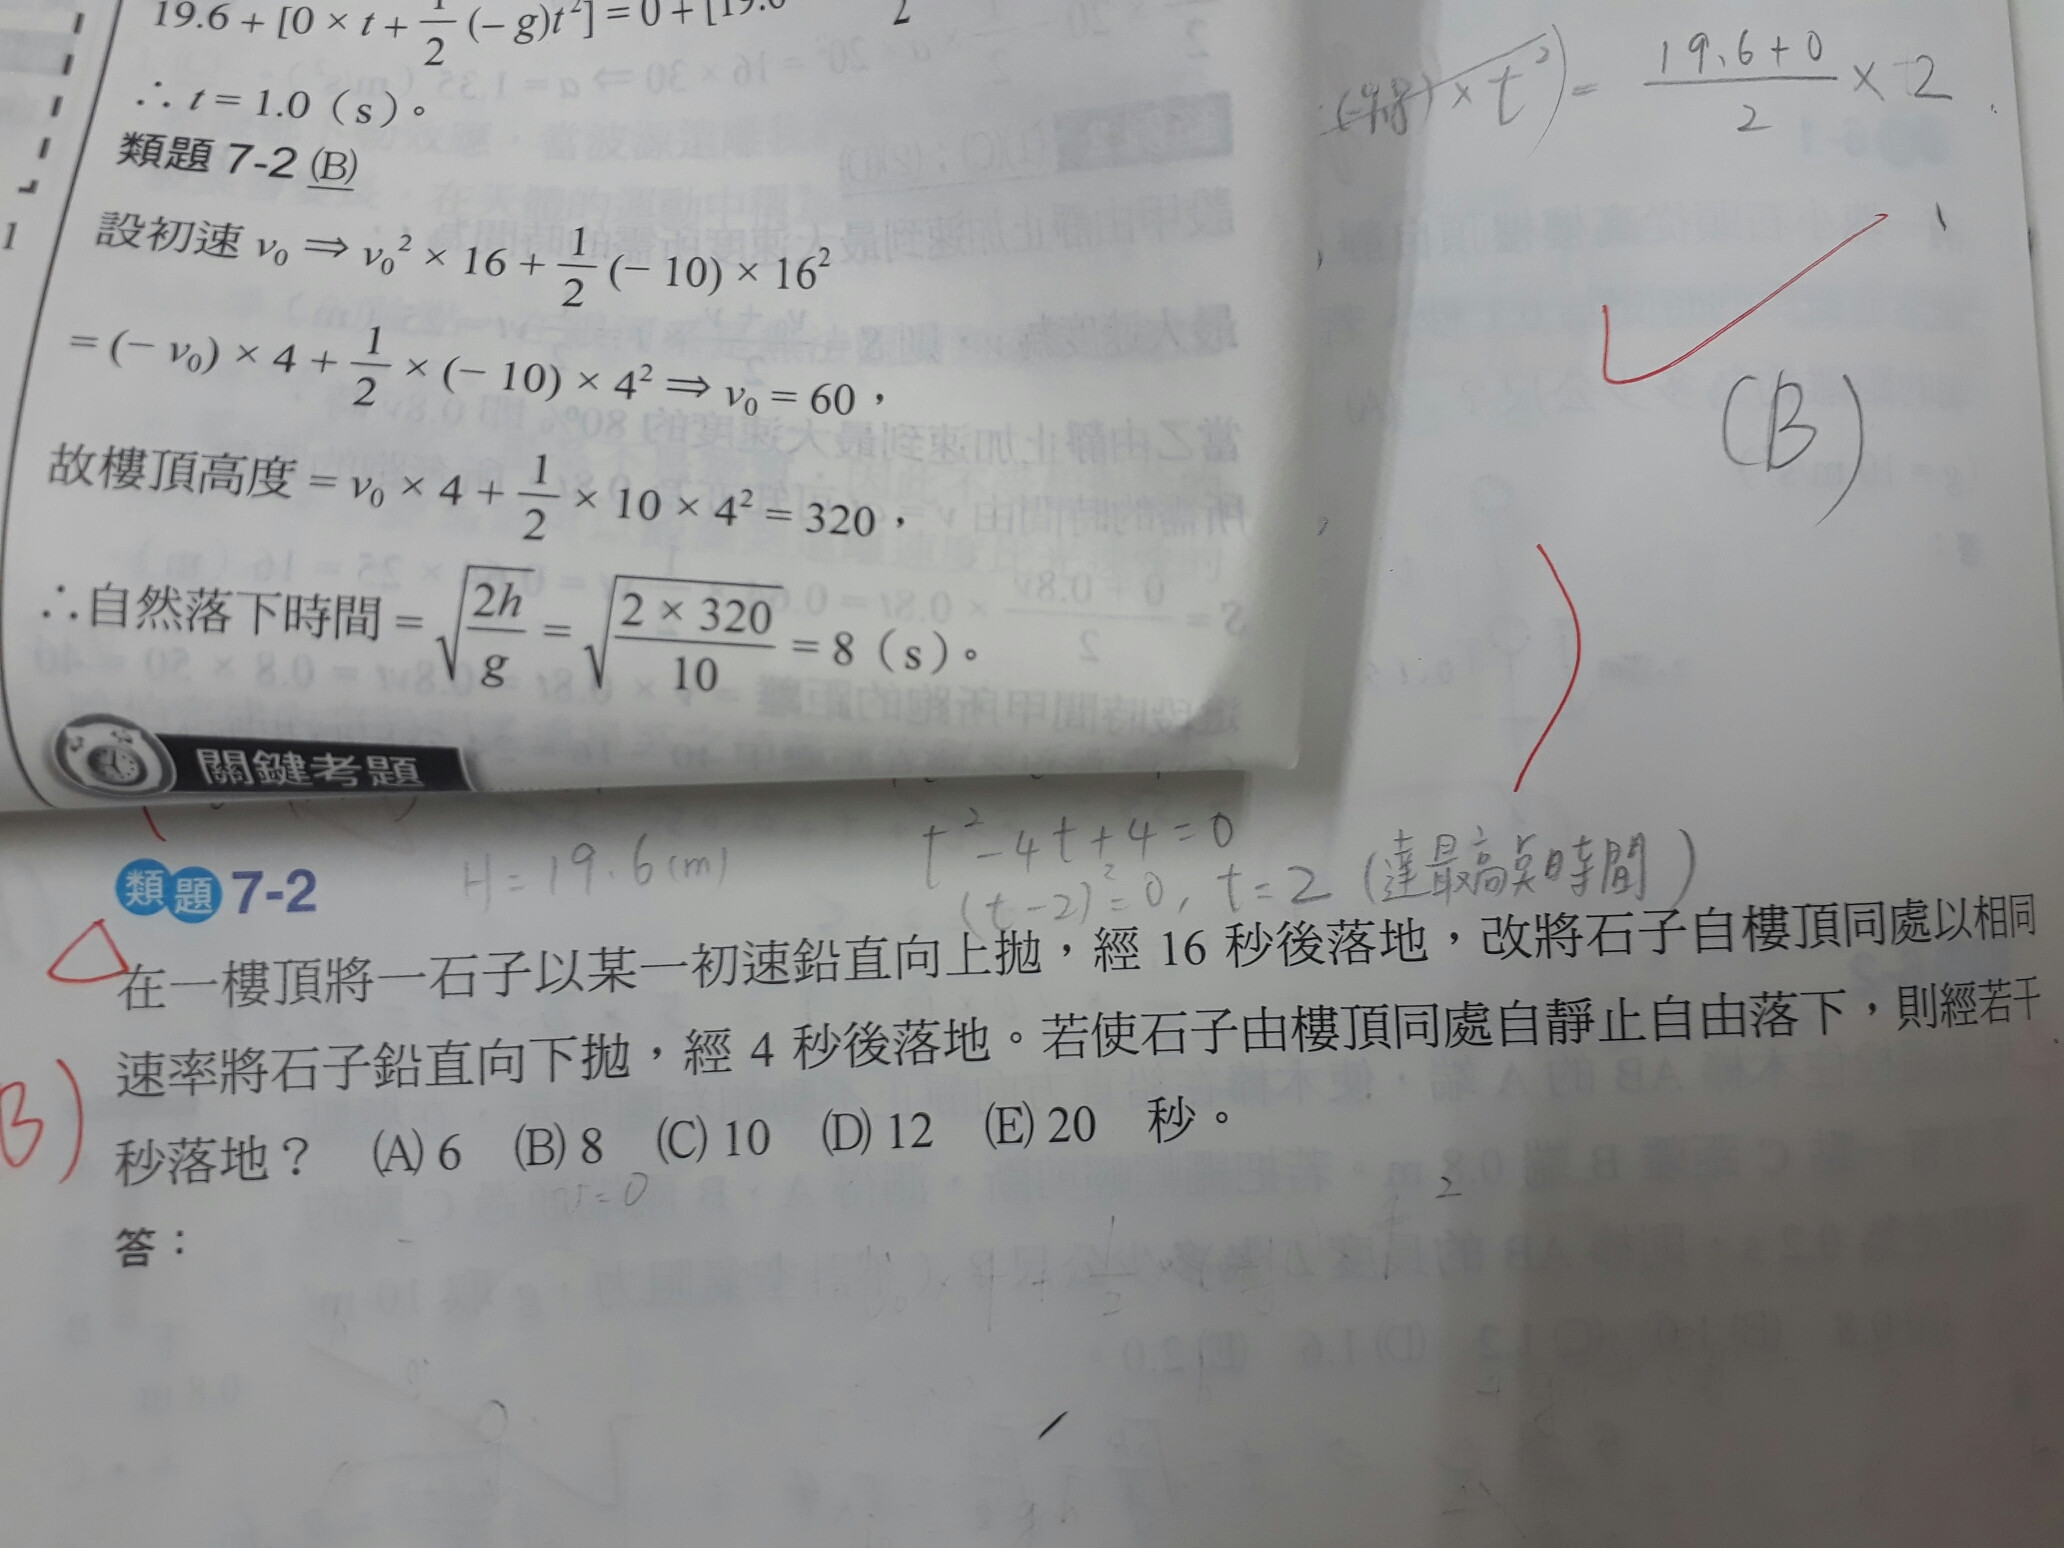 19.6 + [0 × t + 1/2 (− g)t²] = 0 + [19.6
∴ t = 1.0（s）。
類題 7-2 (B)
設初速 v₀ ⇒ v₀² × 16 + 1/2 (− 10) × 16²
= (− v₀) × 4 + 1/2 × (− 10) × 4² ⇒ v₀ = 60，
故樓頂高度 = v₀ × 4 + 1/2 × 10 × 4² = 320，
∴自然落下時間 = √(2h/g) = √(2 × 320/10) = 8（s）。
關鍵考題
× t²) = (19.6+0)/2 × 2
(B)
H = 19.6 (m)
t² − 4t + 4 = 0
(t − 2)² = 0, t = 2 (達最高點時間)
類題 7-2
在一樓頂將一石子以某一初速鉛直向上拋，經 16 秒後落地，改將石子自樓頂同處以相同
速率將石子鉛直向下拋，經 4 秒後落地。若使石子由樓頂同處自靜止自由落下，則經若干
秒落地？ (A) 6 (B) 8 (C) 10 (D) 12 (E) 20 秒。
B)
答：